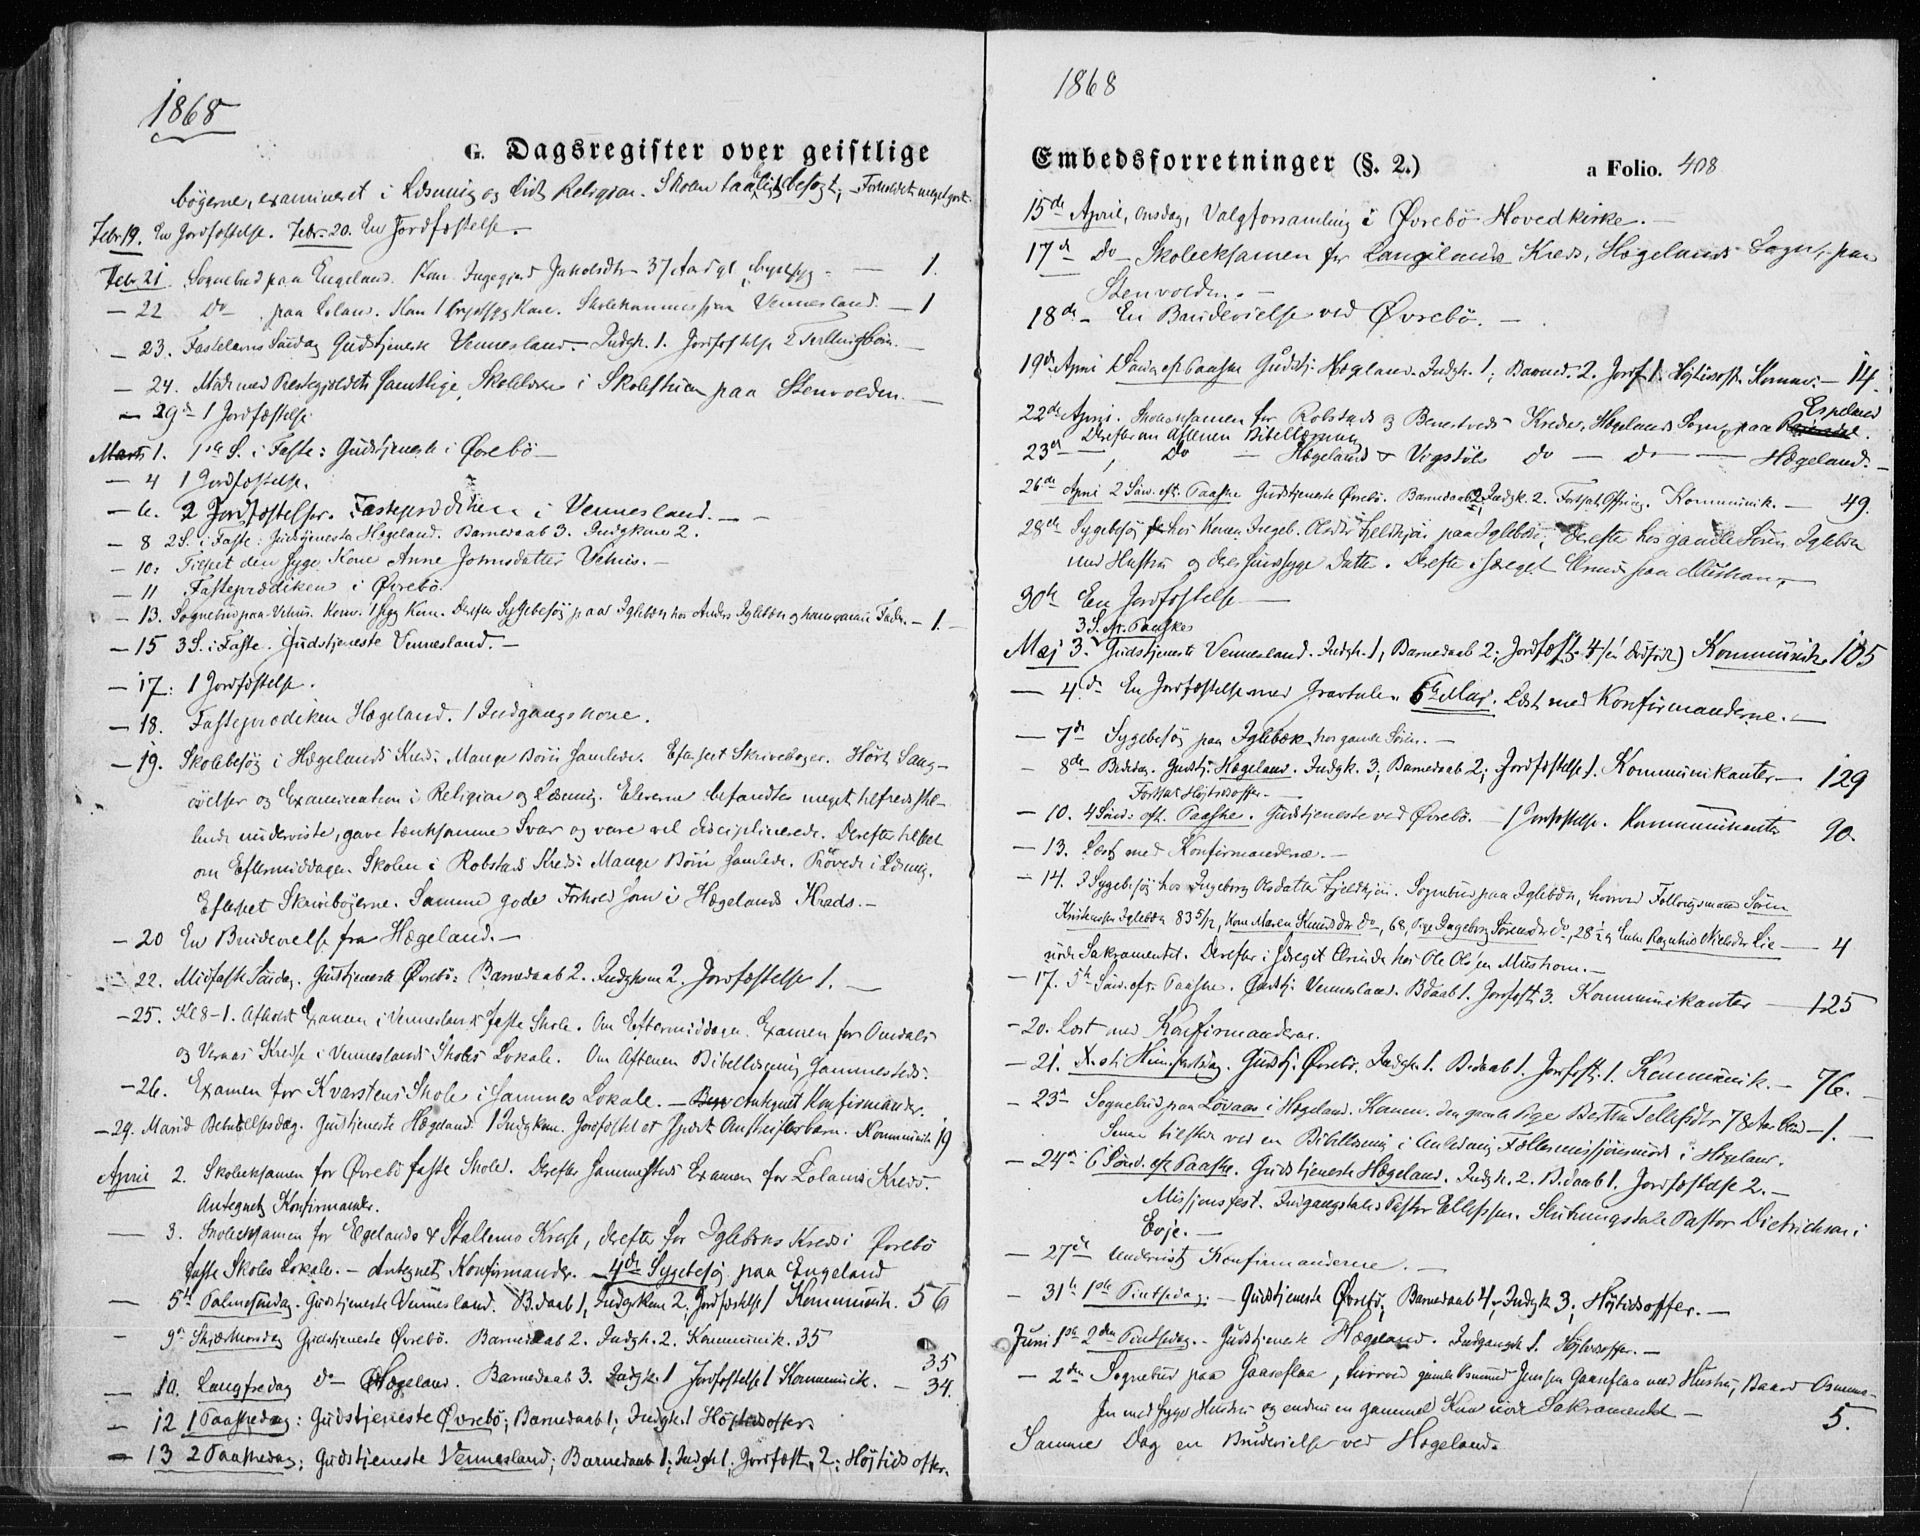 1868
G. Dagsregister over geistlige
bøgerne, examineret i Læsning og lidt Religion. Skolen taalelig besøgt; Forholdet meget godt.
Febr 19. En Jordfæstelse. Febr. 20. En Jordfæstelse.
Febr 21 Sognebud paa Engeland. Kom. Ingegjerd Jakobsdtr 37 Aar gl. brystsyg. — 1.
— 22 Do paa Eland. Kom 1 brystsyg Kone. Skolekommission Vennesland. — 1
— 23. Fastelavns Søndag Gudstjeneste Vennesland. Indgk. 1. Jordfæstelse 2 Tvillingbørn.
— 24. Møde med Præstegjeldets samtlige Skolelærere i Skolestuen paa Stenvolden.
— 29de 1 Jordfæstelse
Marts 1. 1ste S. i Faste: Gudstjeneste i Øvrebö
— 4 1 Jordfæstelse.
— 6. 2 Jordfæstelser. Fasteprædiken i Vennesland.
— 8 2 S. i Faste: Gudstjeneste Hægeland. Barnedaab 3. Indgkone 2.
— 10: Tilset den syge Kone Anne Johnsdatter Vehus.
— 11 Fasteprædiken i Øvrebö
— 13. Sognebud paa Vehus. Kom. 1 syg Kone. Derefter Sygebesøg paa Iglebæk hos Anders Iglebæk og hans gamle Fader. — 1.
— 15 3 S. i Faste. Gudstjeneste Vennesland.
— 17: 1 Jordfæstelse.
— 18. Fasteprædiken Hægeland. 1 Indgangskone.
— 19. Skolebesøg i Hægelands Kreds. Mange Børn samlede. Efterset Skrivebøger. Hørt Sang-
øvelser og Examination i Religion og Læsning. Eleverne befandtes meget tilfredsstil-
lende underviste, gave tænksomme Svar og vare vel disciplinerede. Derefter tilset
om Eftermiddagen Skolen i Robstad Kreds. Mange Børn samlede. Prøvede i Læsning.
Efterset Skrivebøgerne. Samme gode Forhold som i Hægelands Kreds.
— 20 En Brudevielse fra Hægeland.
— 22. Midfaste Søndag. Gudstjeneste Øvrebö: Barnedaab 2. Indgkone 2. Jordfæstelse 1.
— 25. Kl 8-1. Afholdt Examen i Venneslands faste Skole. Om Eftermiddagen Examen for Omdals
og Veraas Kredse i Venneslands Skoles Lokale. Om Aftenen Bibellæsning sammesteds.
— 26. Examen for Kvarstens Skole i sammes Lokale. — Antegnet Konfirmander.
— 29. Mariæ Bebudelsesdag. Gudstjeneste Hægeland. 1 Indgkone. Jordfæstet et barn. Kommunik 19
April 2. Skoleeksamen for Øvrebö faste Skole. Derefter sammesteds Examen for Eelands Kreds.
Antegnet Konfirmander.
— 3. Skoleeksamen for Egelands & Stallemo Kredse, derefter for Iglebæks Kreds i Øvrebö
faste Skoles Lokale. — Antegnet Konfirmander. — 4de Sygebesøg paa Engeland
— 5te Palmesøndag. Gudstjeneste Vennesland. B.daab 1, Indgkone 2, Jordfæstelse 1 Kommunik. 56
— 9de Skjærtorsdag Gudstjeneste Øvrebö. Barnedaab 2. Indgk. 2. Kommunik. 35
35
— 10. Langfredag Do Hægeland. Barnedaab 3. Indgk. 1 Jordfæstelse 1 Kommunik. — 34.
— 12 1 Paaskedag: Gudstjeneste Øvrebö; Barnedaab 1; Indgk. 1 Højtidsoffer.
— 13 2 Paaskedag; Gudstjeneste Vennesland; Barnedaab 1; Indgk 1. Jordfæst. 2; Højtidsoffer.
1868
Embedsforretninger (§. 2.) a Folio. 408
15de April, Onsdag, Valgforsamling i Øvrebö Hovedkirke.
17de Do Skoleeksamen for Langelands Kreds, Hægelands Sogn, paa
Stenvolden.
18de — En Brudevielse ved Øvrebö.
19de April 1 Sönd. eft Paaske Gudstj. Hægeland. Indgk. 1; Barned. 2. Jordf 1. Højtidsoff. Kommu. — 14.
22de April. Skoleeksamen for Robstads & Benestveds Kredse, Hægelands Sogn, paa Espeland
Derefter om Aftenen Bibellæsning
23de Do — Hægeland & Vigstöls Do — Do — Hægeland.
26de April 2 Sönd. eft. Paaske Gudstjeneste Øvrebö. Barnedaab 2 Indgk. 2. Fortsat Offring. Kommunik. — 49.
28de Sygebesøg hos Konen Ingeb. Olsdtr Fjeldkjær paa Iglebæk; derefter hos gamle Søren Iglebæk
med Hustru og deres sindssyge Datter. Derefter i særeget Ærinde paa Mushom.
30te En Jordfæstelse
3 S. eft. Paaskes
Maj 3. Gudstjeneste Vennesland. Indgk. 1, Barnedaab 2; Jordfæst. 4 (en dødfødt) Kommunik. 105
— 4de En Jordfæstelse med Gravtale. 6te Maj. Læst med Konfirmanderne.
— 7de Sygebesøg paa Iglebæk hos gamle Søren.
— 8de Bededag. Gudstj. Hægeland. Indgk. 3; Barnedaab 2; Jordfæstelse 1. Kommunikanter — 129
Fortsat Højtidsoffer.
— 10. 4 Sönd. eft. Paaske. Gudstjeneste ved Øvrebö. — 1 Jordfæstelse. Kommunikanter 90.
— 13. Læst med Konfirmanderne.
— 14. Sygebesøg hos Ingeborg Olsdatter Fjeldkjær. Sognebud paa Iglebæk, hvorved Follougsmand Søren
Kristensen Iglebæk 83 5/12, Kone Maren Knudsdtr Do, 68, Pige Ingeborg Sørensdtr Do, 28 1/2 og Enke Ragnhild Nielsdtr Lie — 4
nøde Sakramentet. Derefter i særeget Ærinde hos Ole Olsen Mushom.
— 17. 5te Sönd. eft. Paaske. Gudstj. Vennesland. Bdaab 1. Jordfæst 3. Kommunikanter — 125
— 20. Læst med Konfirmanderne.
— 21. Kristi Himmelfartsdag. Gudstj. Øvrebö. Indgk 1. B.daab 1. Jordfst. 1. Kommunik. — 76.
— 23de Sognebud paa Løvaas i Hægeland. Konen, den gamle Pige Berthe Tellefsdtr 78 Aar blind — 1.
Senere tilstede ved en Bibellæsning i Anledning Fællesmissjonsmøde i Hægeland.
— 24de 6 Sönd. eft Paaske. Gudstjeneste Hægeland. Indgk. 2. B.daab 1. Jordfæstelse 2.
Missjonsfest. Indgangstale Pastor Ellefsen. Slutningstale Pastor Dietrichson i
Evje.
— 27de Undervist Konfirmanderne.
— 31te 1ste Pintsedag. — Gudstjeneste Øvrebö; Barnedaab 4, Indgk 3; Højtidsoffer.
Juni 1ste 2den Pintsedag. Gudstjeneste Hægeland. Indgangsk 1. Højtidsoffer.
— 2den Sognebud paa Gaaseflaa, hvorved gamle Osmund Jensen Gaaseflaa med Hustru, Baard Osmund-
sen med syge Hustru og endnu en gammel Kone nøde Sakramentet — 5.
Samme Dag en Brudevielse ved Hægeland.